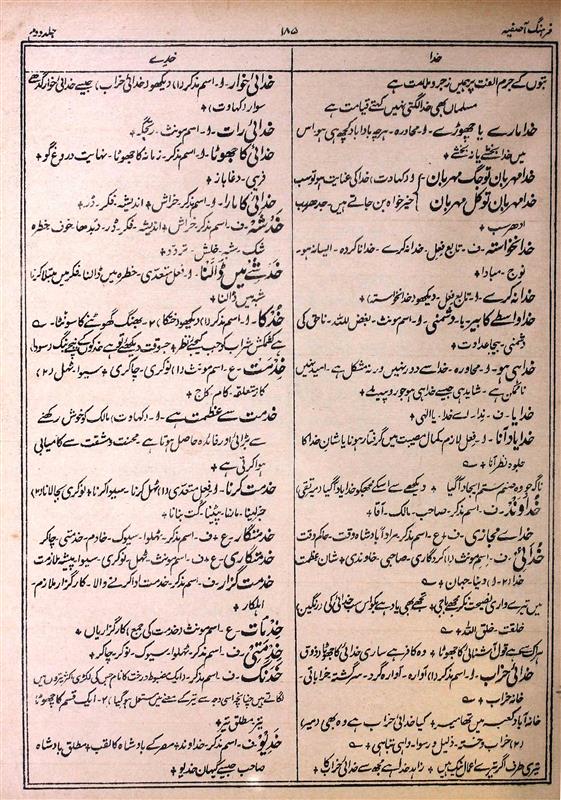 فرہنگ آصفیہ
۱۸۵
جلد دوم
خدا
خدیے
بتوں کے جرم الفت پر ہمیں زجر و ملامت ہے
مسلماں بھی خدا لگتی نہیں کہتے قیامت ہے
خدا مارے یا چھوڑے۔ و۔ محاورہ۔ ہرچہ بادا باد کچھ ہی ہو اس
میں خدا بخشے یا نہ بخشے +
خدا مہربان تو جگ مہربان (و۔ کہاوت) خدا کی عنایت ہو تو سب
خدا مہربان تو کل مہربان خیر خواہ بن جاتے ہیں۔ جدھر رب
ادھر سب +
خدا نخواستہ۔ ف۔ تابع فعل۔ خدا نہ کرے۔ خدا ناکردہ۔ ایسا نہ ہو۔
نوج۔ مبادا +
خدا نہ کرے۔ و۔ تابع فعل۔ دیکھو (خدا نخواستہ) +
خدا واسطے کا بیر۔ یا۔ دشمنی۔ و۔ اسم مونث۔ بغض للہ۔ ناحق کی
دشمنی۔ بیجا عداوت +
خدا ہی ہو۔ و۔ محاورہ۔ خدا سے دور نہیں ورنہ مشکل ہے۔ امید نہیں
ناممکن ہے۔ شاید ہی جیسے خدا ہی ہو جو روپیہ ملے +
خدایا۔ ف۔ ندا۔ اے خدا۔ یا الٰہی +
خدا یاد آنا۔ و۔ فعل لازم۔ کمال مصیبت میں گرفتار ہونا یا شان خدا کا
جلوہ نظر آنا +
ناگہ جو وہ صنم ستم ایجاد آ گیا + دیکھے سے اسکے مجھکو خدا یاد آ گیا (میر تقی)
خداوند۔ ف۔ اسم مذکر۔ صاحب۔ مالک۔ آقا +
خدائے مجازی۔ ف + ع۔ اسم مذکر۔ مراد بادشاہ وقت۔ حاکم وقت
خدائی۔ ف۔ اسم مونث (۱) کردگاری۔ صاحبی۔ خاوندی + شان عظمت
خدا (۲۔ و) دنیا۔ جہان +
میں تیرے واری نصیحت نہ کر مجھے باجی + تجھے بھی یاد ہے کو اس خدائی کی (رنگین)
خلقت۔ خلق اللہ +
ہر اک سے ہے قول آشنائی کا جھوٹا + وہ کافر ہے ساری خدائی کا جھوٹا (ذوق)
خدائی خراب۔ و۔ اسم مذکر (۱) آوارہ۔ آوارہ گرد۔ سرگشتہ۔ خراباتی۔
خانہ خراب +
خانہ آباد کعبہ میں تھا میر + کیا خدائی خراب ہے وہ بھی (میر)
(۲) خراب و خستہ۔ ذلیل و رسوا۔ واہی تباہی +
تیری طرف اگر تیرے عمال نیک ہیں + زاہد خدا ہے مجھ سے خدائی خراب کا
خدائی خوار۔ و۔ اسم مذکر (۱) دیکھو (خدائی خراب) جیسے خدائی خوار گدھے
سوار (کہاوت) +
خدائی رات۔ و۔ اسم مونث۔ رتجگہ +
خدائی کا جھوٹا۔ و۔ اسم مذکر۔ زمانہ کا جھوٹا۔ نہایت دروغ گو +
فریبی۔ دغاباز +
خدائی کا مارا۔ و۔ اسم مذکر۔ خراش + اندیشہ۔ فکر۔ ڈر +
خدشہ۔ ف۔ اسم مذکر۔ خراش + اندیشہ۔ فکر۔ ڈر۔ دبدھا۔ خوف۔ خطرہ
شک۔ شبہ۔ خلش۔ تردد +
خدشے میں ڈالنا۔ و۔ فعل متعدی۔ خطرہ میں ڈالنا۔ فکر میں مبتلا کرنا
شبہ میں ڈالنا +
خدکا۔ و۔ اسم مذکر (۱) دیکھو (دھکا) ۲۔ بھنگ گھوٹنے کا سونٹا۔
خدمت۔ ع۔ اسم مونث (۱) نوکری۔ چاکری + سیوا۔ ٹہل (۲)
کار متعلقہ۔ کام کاج +
خدمت سے عظمت ہے۔ و۔ (کہاوت) مالک کو خوش رکھنے
سے بڑائی اور فائدہ حاصل ہوتا ہے۔ محنت و مشقت سے کامیابی
ہوا کرتی ہے +
خدمت کرنا۔ و۔ فعل متعدی (۱) ٹہل کرنا۔ سیوا کرنا + نوکری بجا لانا (۲)
خبر لینا۔ مارنا۔ پیٹنا۔ گت بنانا +
خدمتگار۔ ع + ف۔ اسم مذکر۔ ٹہلوا۔ سیوک۔ خادم۔ خدمتی۔ چاکر
خدمتگاری۔ ع + ف۔ اسم مونث۔ ٹہل۔ نوکری۔ سیوا۔ پیشہ ملازمت
خدمت گزار۔ ف۔ اسم مذکر۔ خدمت ادا کرنے والا۔ کار گزار ملازم۔
اہلکار +
خدمات۔ ع۔ اسم مونث (خدمت کی جمع) کارگزاریاں +
خدمتی۔ ف۔ اسم مذکر۔ ٹہلوا۔ سیوک۔ نوکر۔ چاکر +
خدنگ۔ ف۔ اسم مذکر۔ ایک مضبوط درخت کا نام جس کی لکڑی اکثر تیروں میں
لگاتے ہیں چنانچہ اسی وجہ سے تیر کے معنے میں مستعمل ہو گیا (۲)۔ ایک قسم کا چھوٹا
تیر۔ مطلق تیر +
خدیو۔ ف۔ اسم مذکر۔ خداوند + مصر کے بادشاہ کا لقب + مطلق بادشاہ
صاحب جیسے کیہان خدیو +